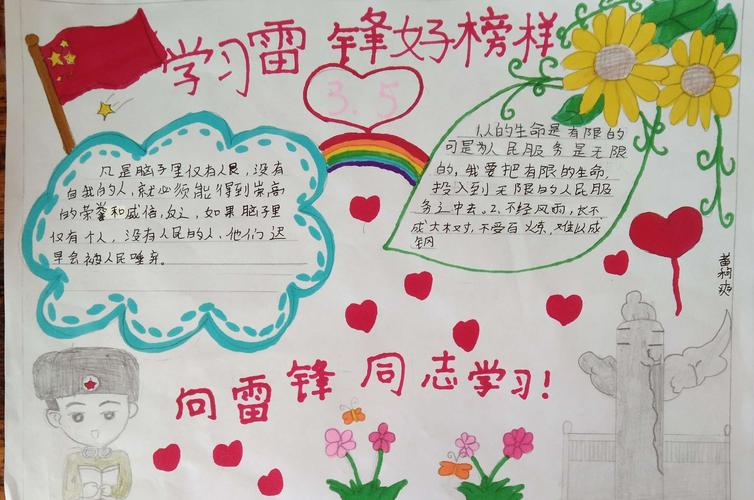 学习雷锋好榜样
3.5
凡是脑子里仅有人民，没有
自我的人，就必须能得到崇高
的荣誉和威信，反之，如果脑子里
仅有个人，没有人民的人、他们迟
早会被人民唾弃。
1.人的生命是有限的
可是为人民服务是无限
的，我爱把有限的生命，
投入到无限的人民服
务之中去。2、不经风雨，长不
成大树，不受百炼，难以成
钢
向雷锋同志学习！